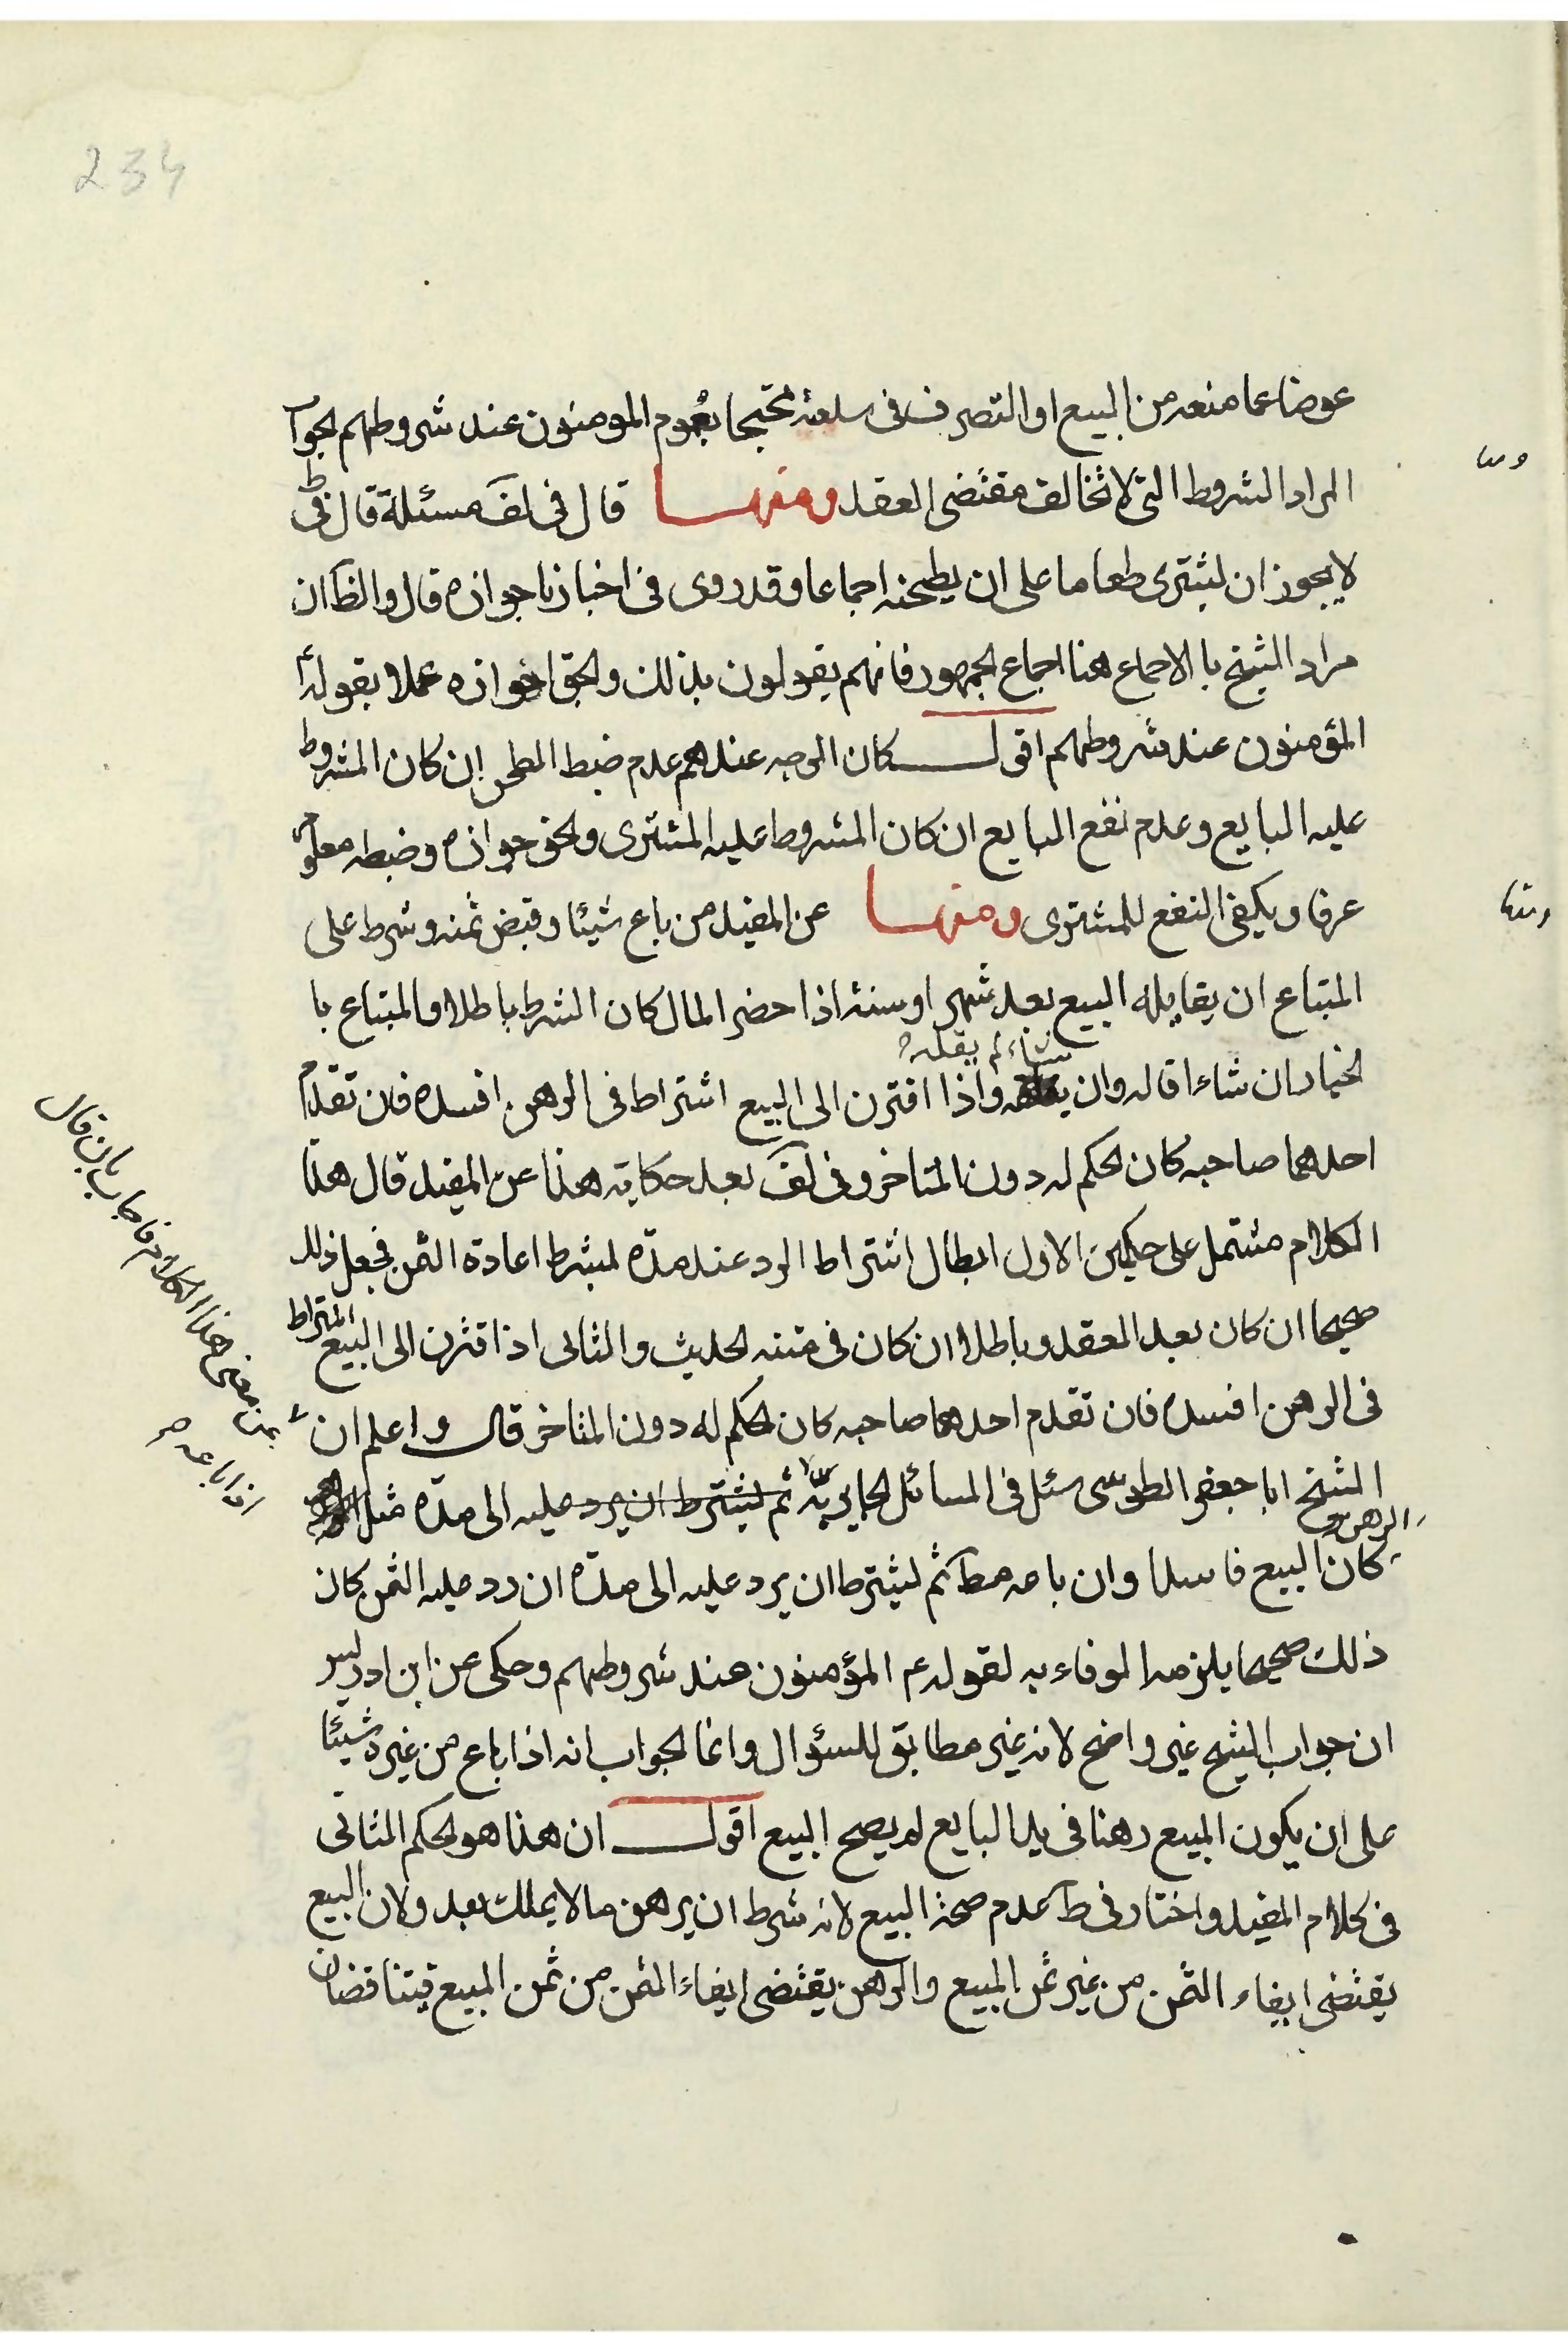 234
عوضا عما منعه من البيع او التصرف فى سلعته محتجا بعموم المومنون عند شروطهم الجواب
المراد الشروط التى لا تخالف مقتضى العقد ومنها قال فى لف مسئلة قال فى ط
لا يجوز ان يشترى طعاما على ان يطحنه اجماعا وقد روى فى اخبارنا جوازه قال والظ ان
مراد الشيخ با الاجماع هنا اجماع الجمهور فانهم يقولون بذلك والحق جوازه عملا بقوله ع
المؤمنون عند شروطهم اقول كان الوجه عندهم عدم ضبط الطحن ان كان المشروط
عليه البايع وعدم نفع البايع ان كان المشروط عليه المشترى والحق جوازه وضبطه معلوم
عرفا ويكفى النفع للمشترى ومنها عن المفيد من باع شيئا وقبض ثمنه وشرط على
المبتاع ان يقايله البيع بعد شهر او سنة اذا حضر المال كان الشرط باطلا والمبتاع با
لخيار ان شاء اقاله وان شاء لم يقله واذا اقترن الى البيع اشتراط فى الرهن افسده فان تقدم
احدهما صاحبه كان الحكم له دون المتاخر وفى لف بعد حكايته هذا عن المفيد قال هذا
الكلام مشتمل على حكمين الاول ابطال اشتراط الرد عند مدة لشرط اعادة الثمن فجعل ذلك
صحيحا ان كان بعد العقد وباطلا ان كان فى متنه الحديث والثانى اذا اقترن الى البيع اشتراط
فى الرهن افسده فان تقدم احدهما صاحبه كان الحكم له دون المتاخر قال واعلم ان
الشيخ ابا جعفر الطوسى سئل فى المسائل الحايرية ثم ليشترط ان يرد عليه الى مدة مثل الرهن
كان البيع فاسدا وان باعه مط ثم ليشترط ان يرد عليه الى مدة ان رد عليه الثمن كان
ذلك صحيحا يلزمه الوفاء به لقوله ع م المؤمنون عند شروطهم وحكى عن ابن ادريس
ان جواب الشيخ غير واضح لانه غير مطابق للسؤال وانما الجواب انه اذا باع من غيره شيئا
على ان يكون المبيع رهنا فى يد البايع لم يصح البيع اقول ان هذا هو الحكم الثانى
فى كلام المفيد واختار فى ط عدم صحة البيع لانه شرط ان يرهن ما لا يملك بعد ولان البيع
يقتضى ايفاء الثمن من غير ثمن المبيع والرهن يقتضى ايفاء الثمن من ثمن المبيع فيتناقضان
ومنها
هذا الكلام فاجاب بان قال
اذا باعه